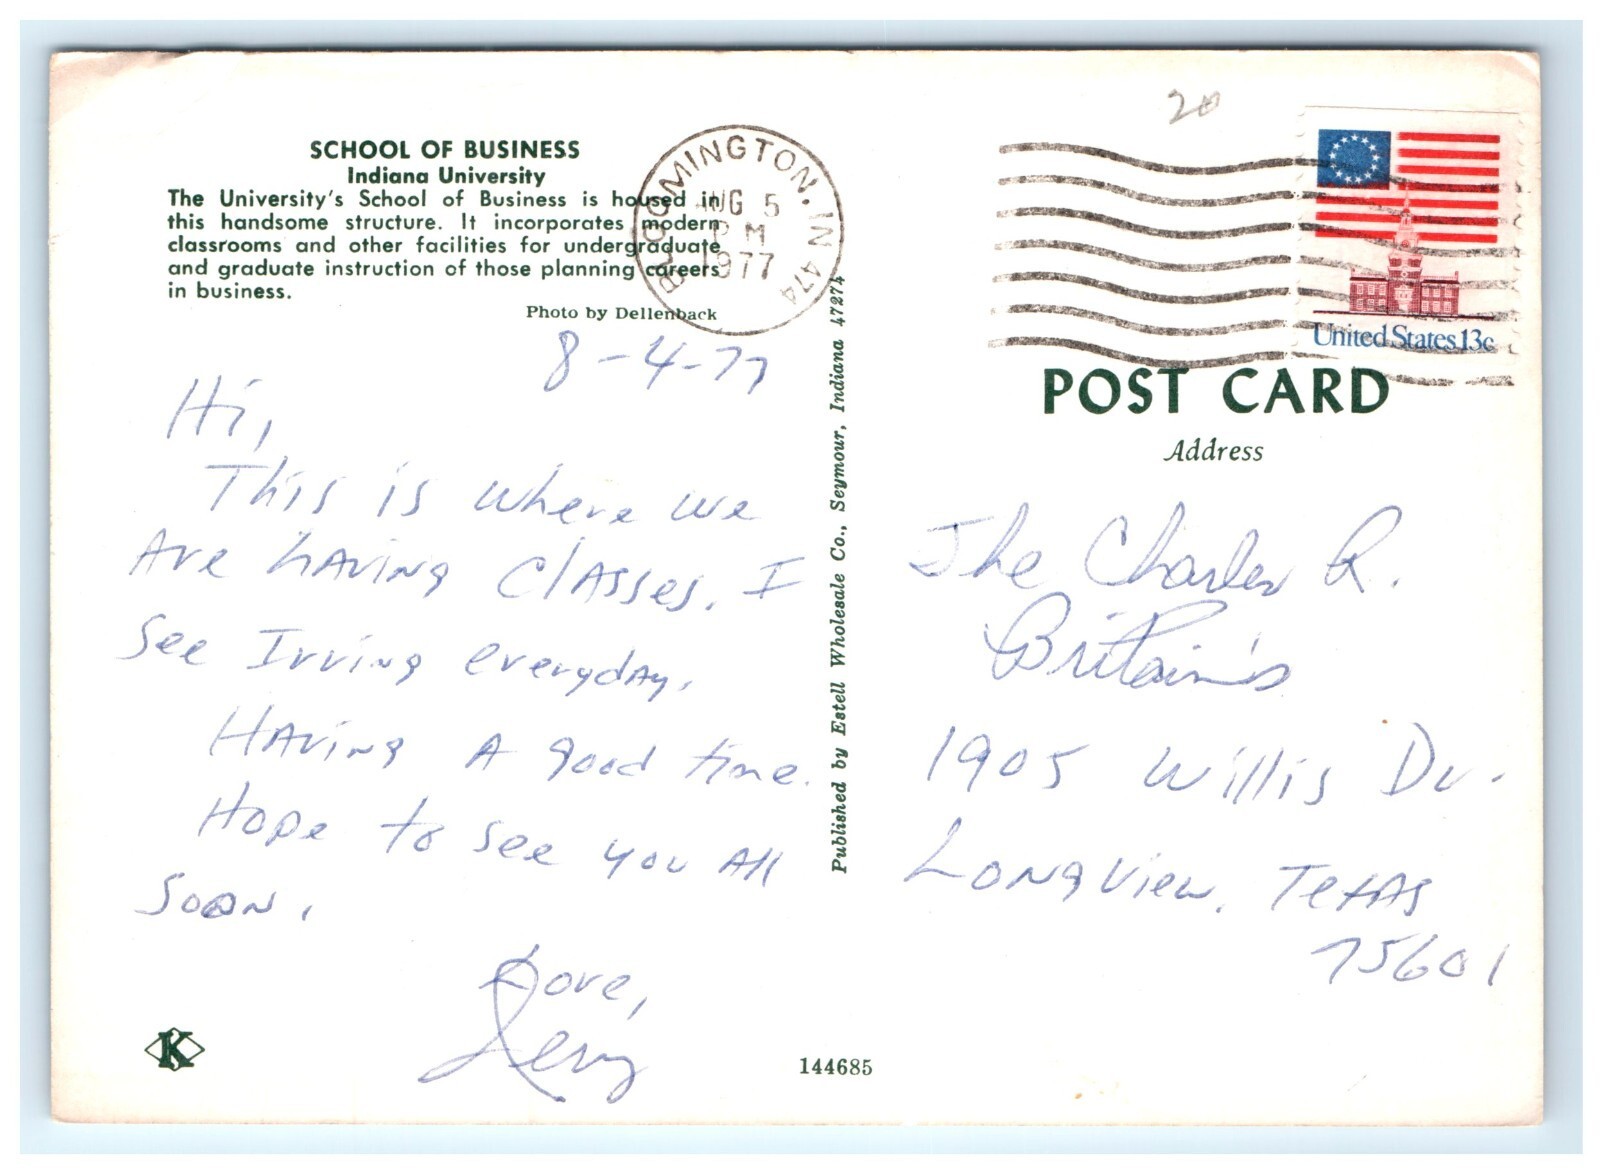 SCHOOL OF BUSINESS
Indiana University
The University's School of Business is housed in
this handsome structure. It incorporates modern
classrooms and other facilities for undergraduate
and graduate instruction of those planning careers
in business.
Photo by Dellenback
BLOOMINGTON, IN 474
AUG 5
PM
1977
8-4-77
Hi,
This is where we
Are having classes. I
See Irving everyday.
Having A good time.
Hope to see you All
Soon.
Love,
K
144685
Published by Estell Wholesale Co., Seymour, Indiana 47274
20
United States 13c
POST CARD
Address
The Charles R.
Britain's
1905 Willis Dr.
Longview, Texas
75601